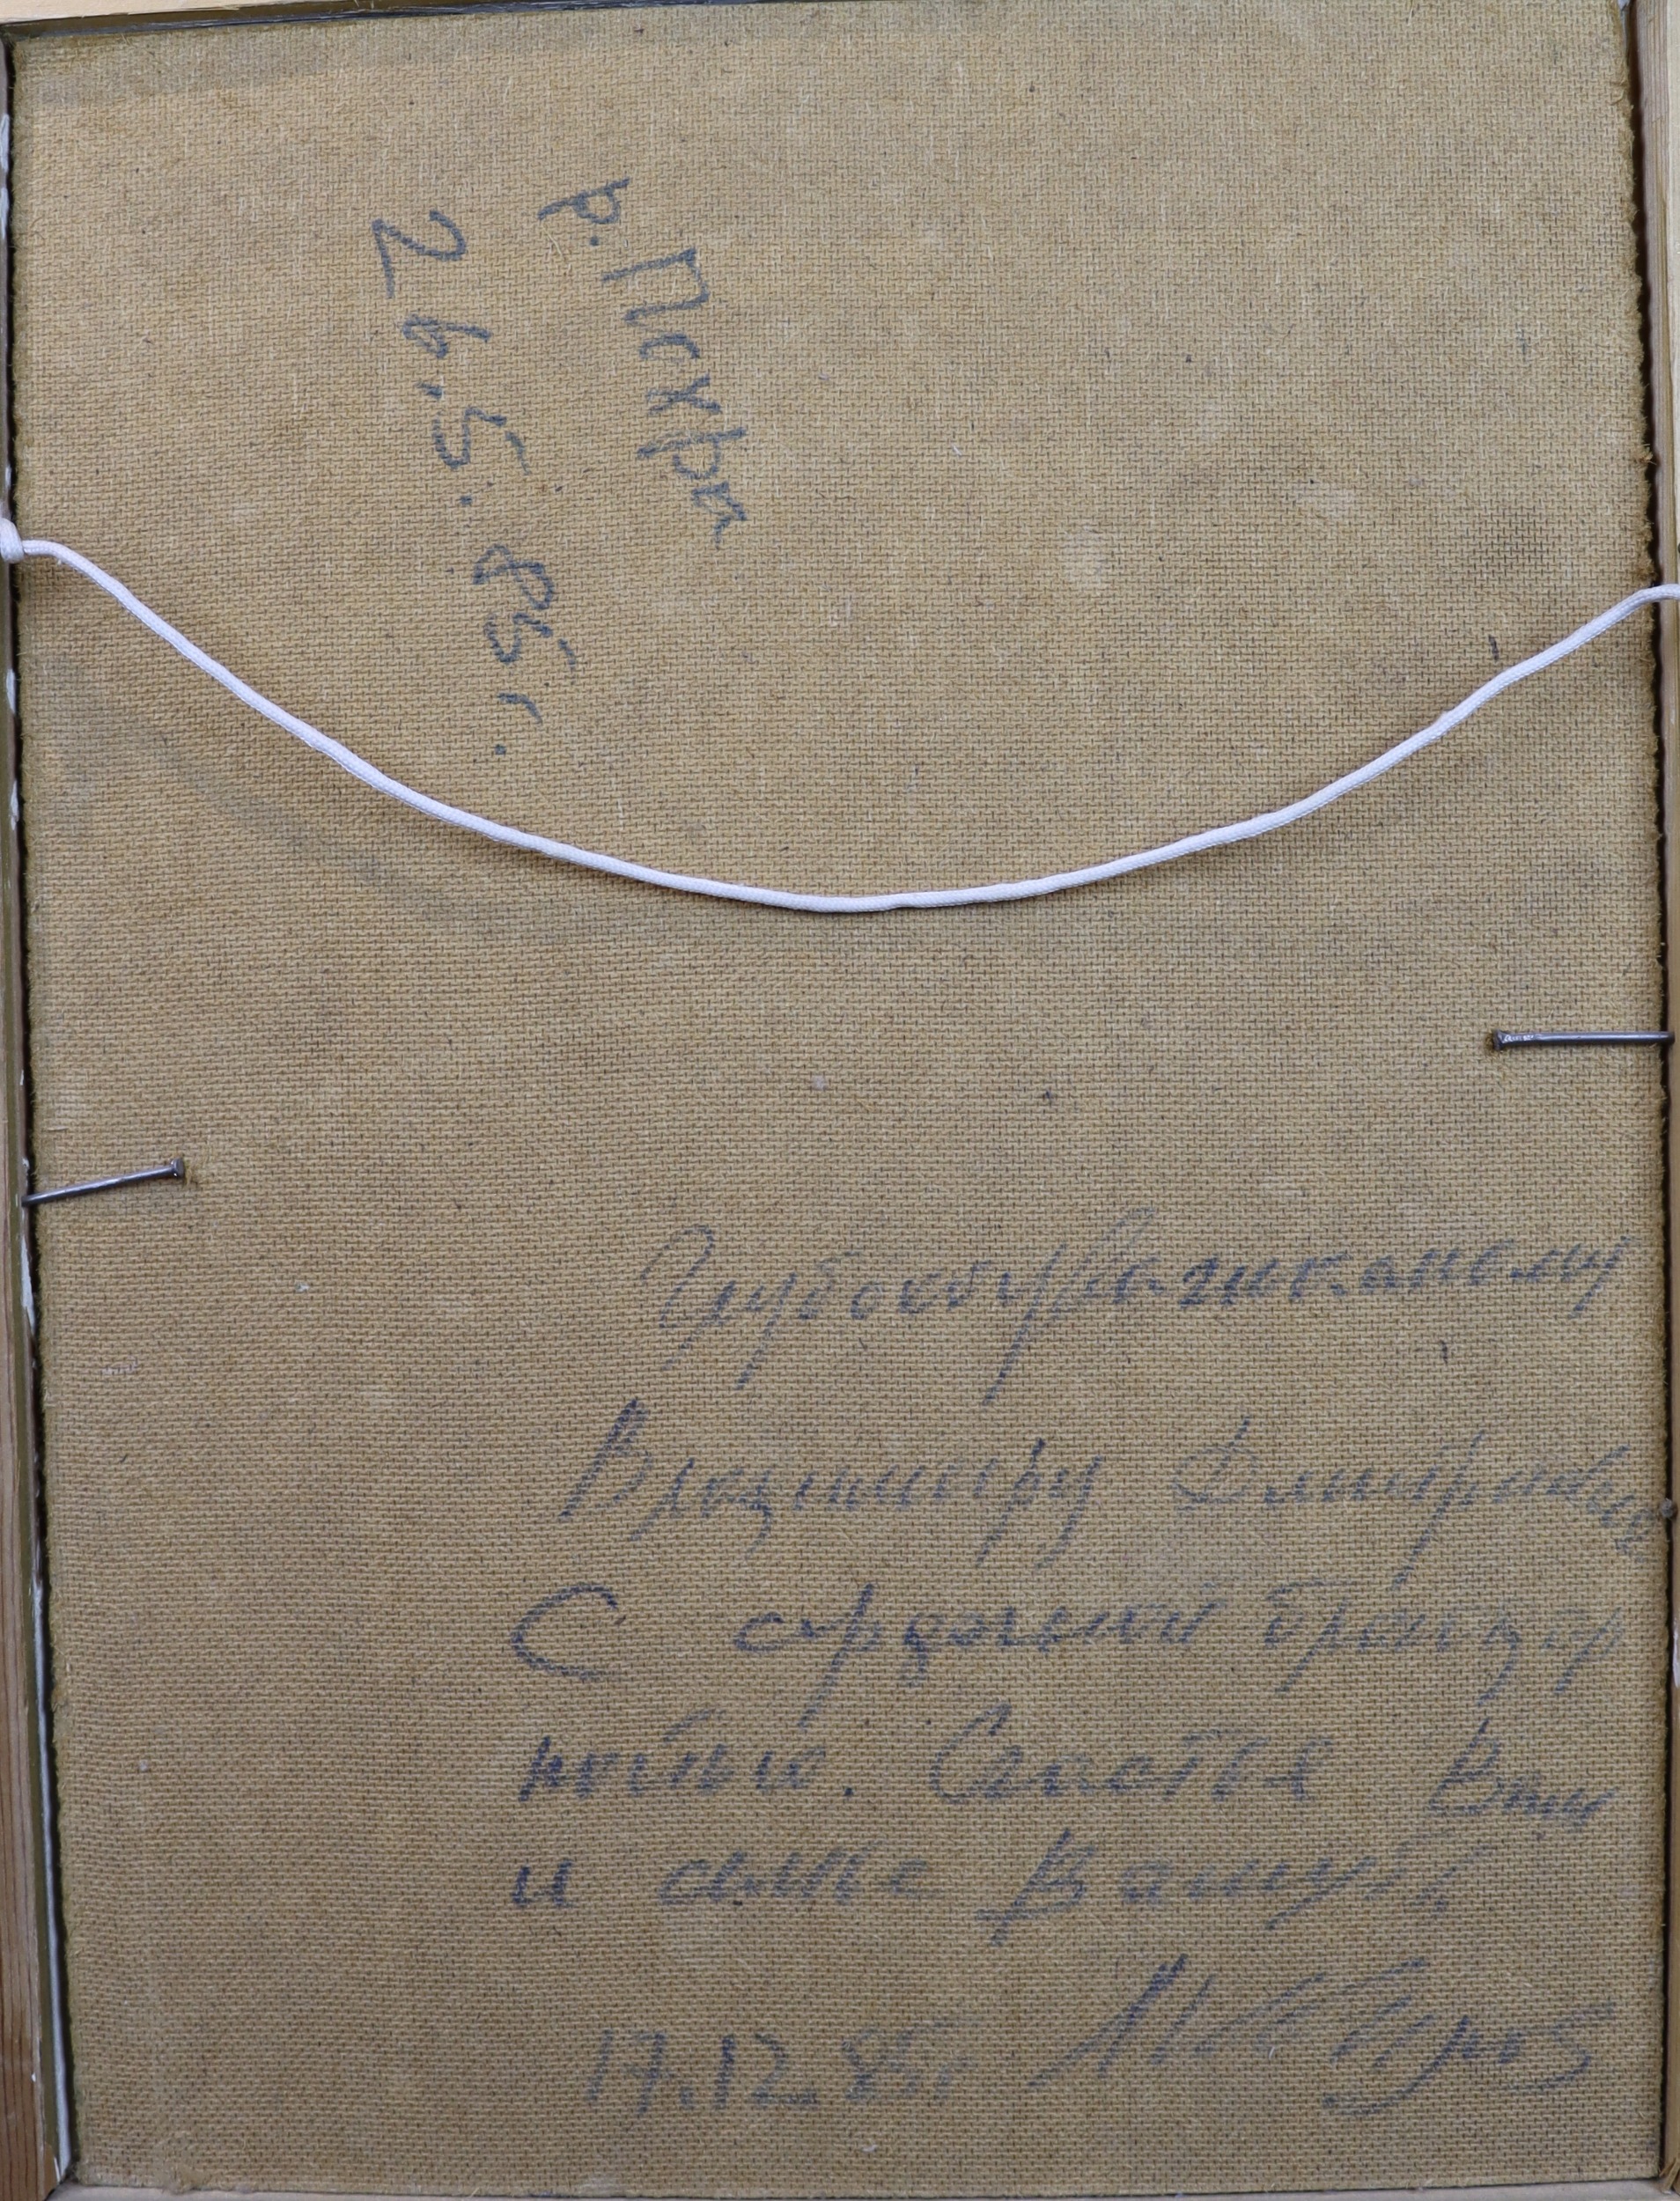 р. Пехра
26.5.85г.
Глубокоуважаемому
Владимиру Дмитриевичу
С сердечной благодар
ностью. Счастья Вам
и семье Вашей
17.12.85г